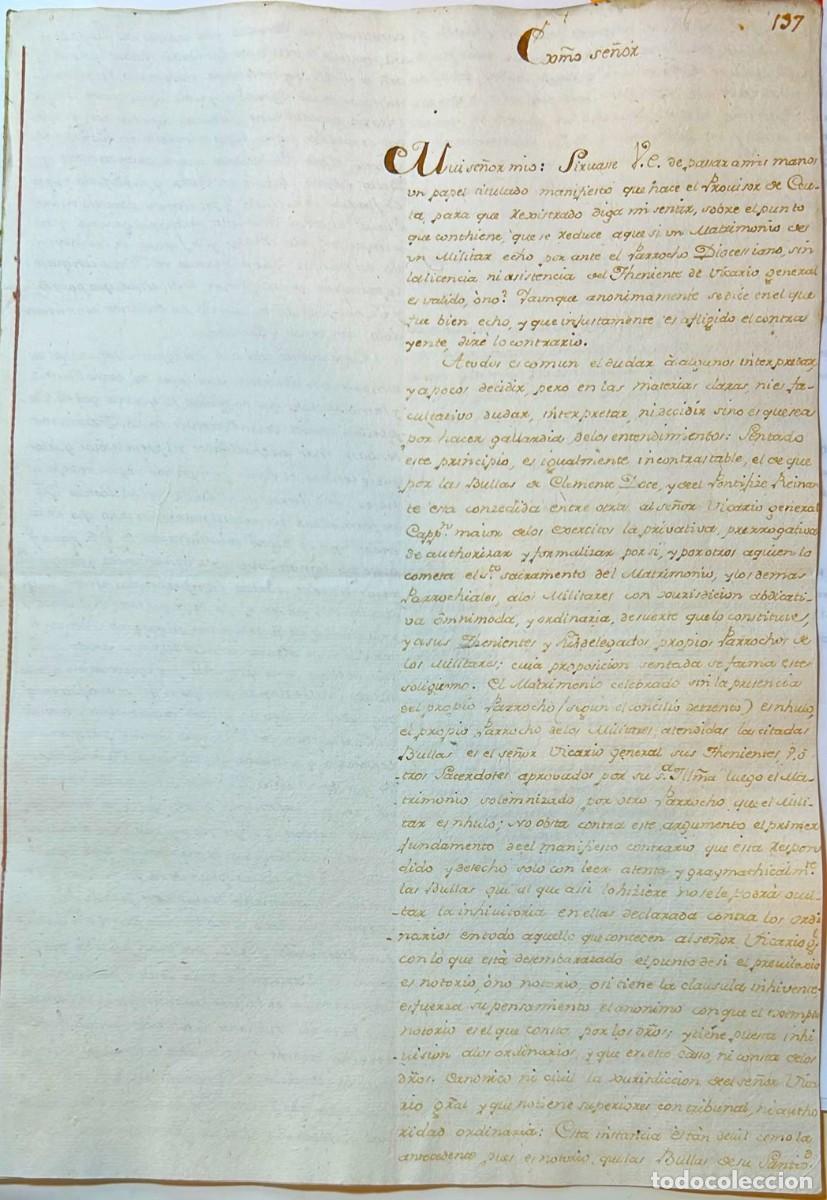 137
Exmo señor
Mui señor mio: Siruasse V.E. de passar a mis manos
un papel titulado manifiesto que hace el Provisor de Ceu-
ta, para que rexistrado diga mi sentir, sobre el punto
que conthiene, que se reduce a que si un Matrimonio de
un Militar echo por ante el Parrocho Diocessiano, sin
la licencia ni asistencia del Theniente de Vicario general
es valido, ò no? Yaunque anonimamente se dice en el que
fue bien echo, y que injustamente es afligido el contra
yente, diré lo contrario.
A todos es comun el dudar à algunos interpretar,
y a pocos decidir, pero en las materias claras, ni es fa-
cultativo dudar, interpretar, ni decidir sino es que sea
por hacer gallardia de los entendimientos: Sentado
este principio, es igualmente incontrastable, el de que
por las Bullas de Clemente Doce, y de el Pontifize Reinan
te esta conzedida entre otras al señor Vicario general
Cappn. maior de los exercitos la privativa, prerrogativa
de authorizar y formalizar por si, y por otros a quien lo
cometa el Sto. sacramento del Matrimonio, y los demas
Parrochiales, a los Militares con jourisdicion abdicati-
va omnimoda, y ordinaria, de suerte que lo constituye,
y a sus Thenientes y Subdelegados propios Parrochos de
los Militares; cuia proposicion sentada se forma este
sologismo. El Matrimonio celebrado sin la presencia
del propio Parrocho (segun el concilio de trento) es nhulo,
el propio Parrocho de los Militares, atendidas las citadas
Bullas es el señor Vicario general sus Thenientes, ù o
tros Sacerdotes aprovados por su Sa. Illma luego el Ma-
trimonio solemnizado por otro Parrocho, que el Mili-
tar es nhulo; No obsta contra este argumento el primer
fundamento de el manifiesto contrario que està respon
dido y desecho solo con leer atenta y gragmathicalmte.
las Bullas que al que asi lo hiziere no se le podrà ocul-
tar la inhivitoria en ellas declarada contra los ordi-
narios en todo aquello que contecen al señor Vicario gl
con lo que està desembarazado el punto de si el previlexio
es notorio, ò no notorio, o si tiene la clausula inhivente
esfuerza su pensamiento el anonimo con que el exempto
notorio es el que consta por los dros: y tiene puesta inhi
vision a los ordinarios, y que en este caso, ni consta de los
dros. Canonico ni civil la jourisdiccion de el señor Vica
rio gral y que no tiene superiores con tribunal, ni autho
ridad ordinaria: Esta instancia es tan devil como la
antecedente pues es notorio, que las Bullas de su Santid
todocoleccion